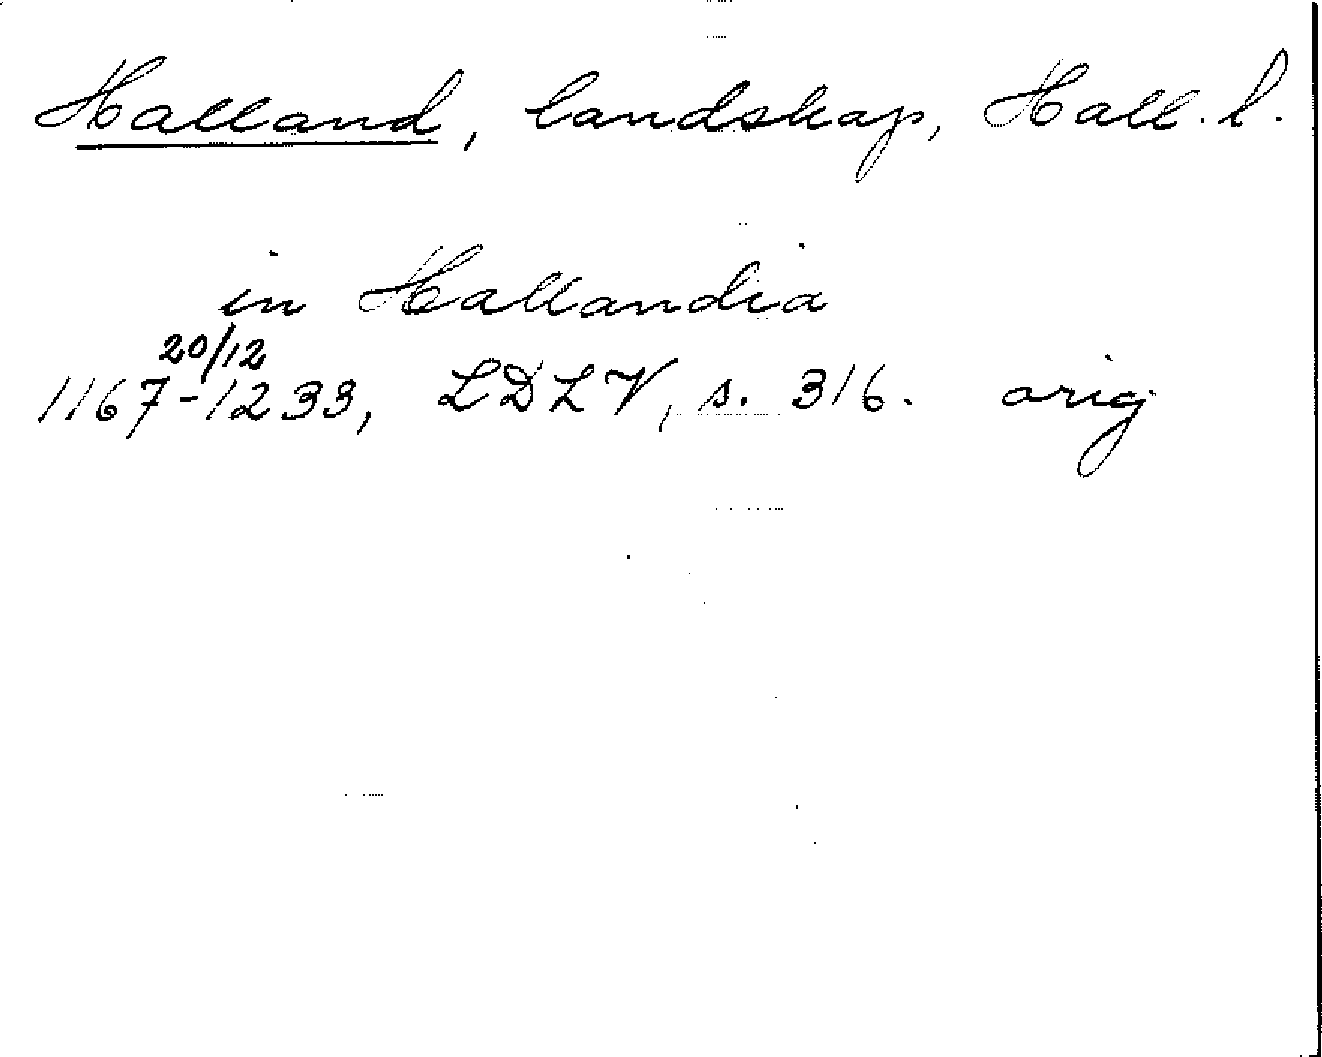 Halland, landskap, Hall. l.
in Hallandia
20/12
1167-1233, LDLV, s. 316. orig